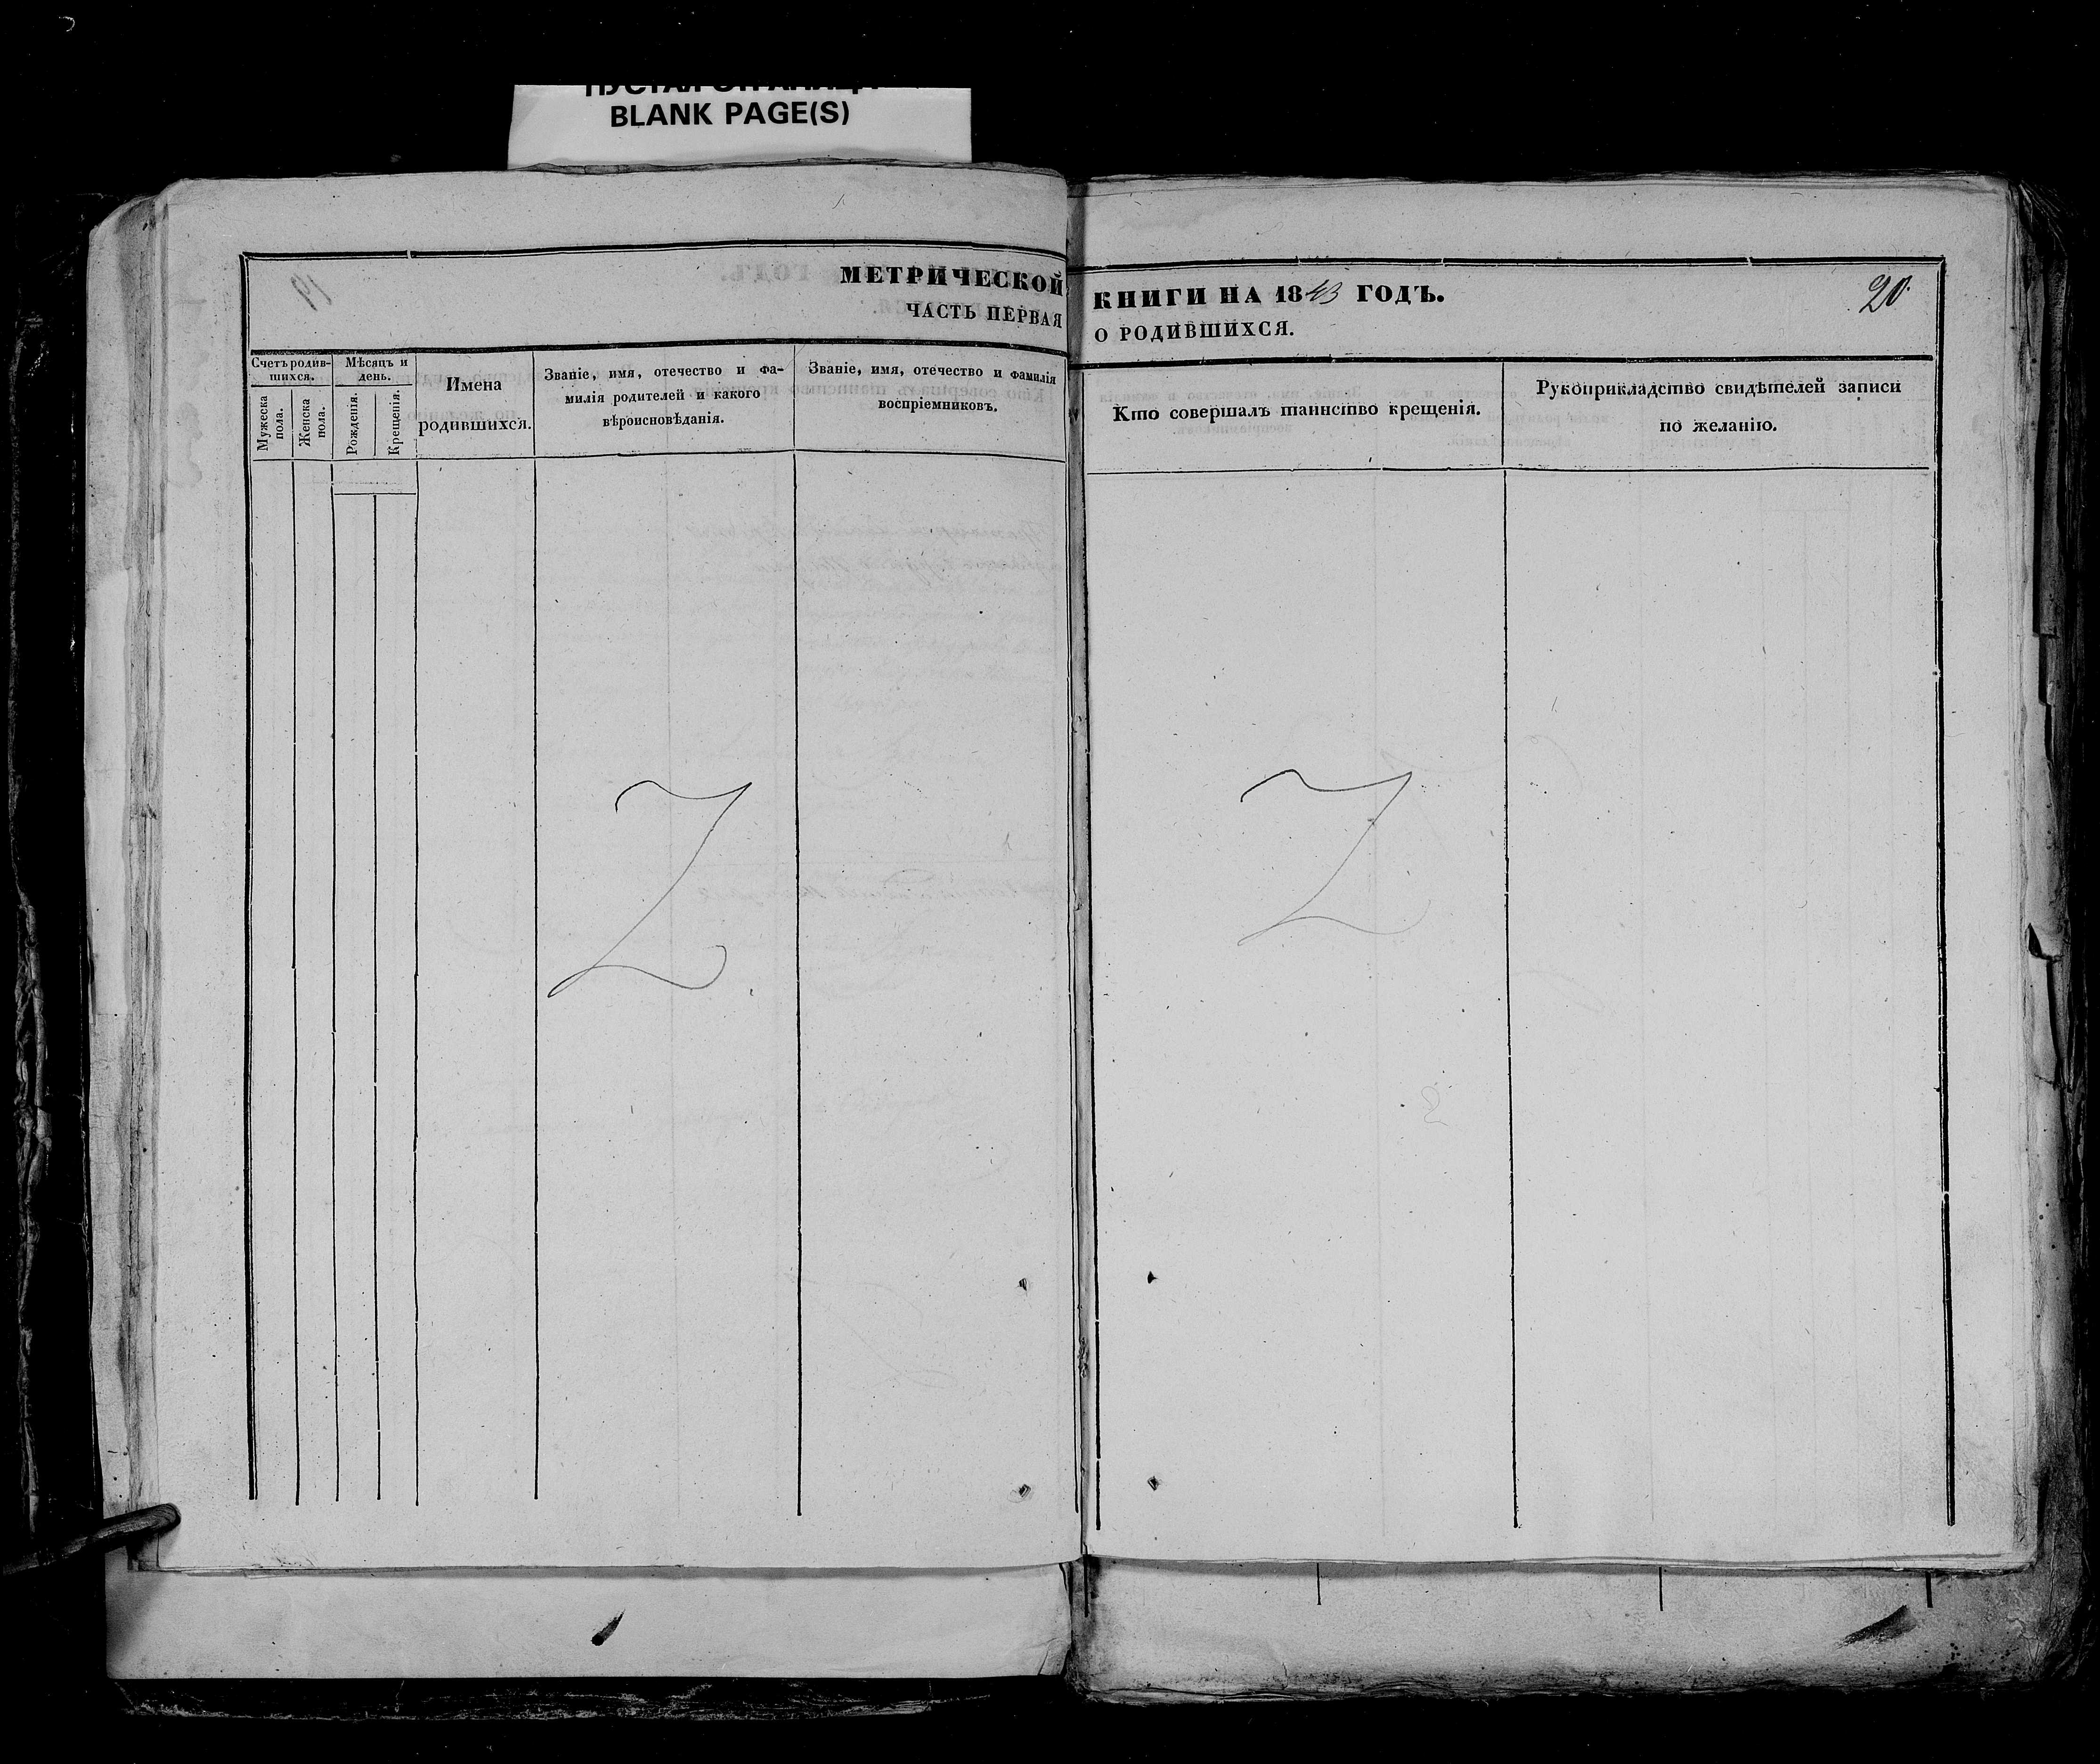 BLANK PAGE(S)
МЕТРИЧЕСКОЙ
ЧАСТЬ ПЕРВАЯ
Счетъ родив-
шихся.
Мужеска
пола.
Женска
пола.
Мѣсяцъ и
день.
Рожденія.
Крещенія.
Имена
родившихся.
Званіе, имя, отечество и фа-
милія родителей и какого
вѣроисновѣданія.
Званіе, имя, отечество и фамилія
воспріемниковъ.
КНИГИ НА 1843 ГОДЪ.
20.
О РОДИВШИХСЯ.
Кто совершалъ таинство крещенія.
Рукоприкладство свидѣтелей записи
по желанію.
Z
Z